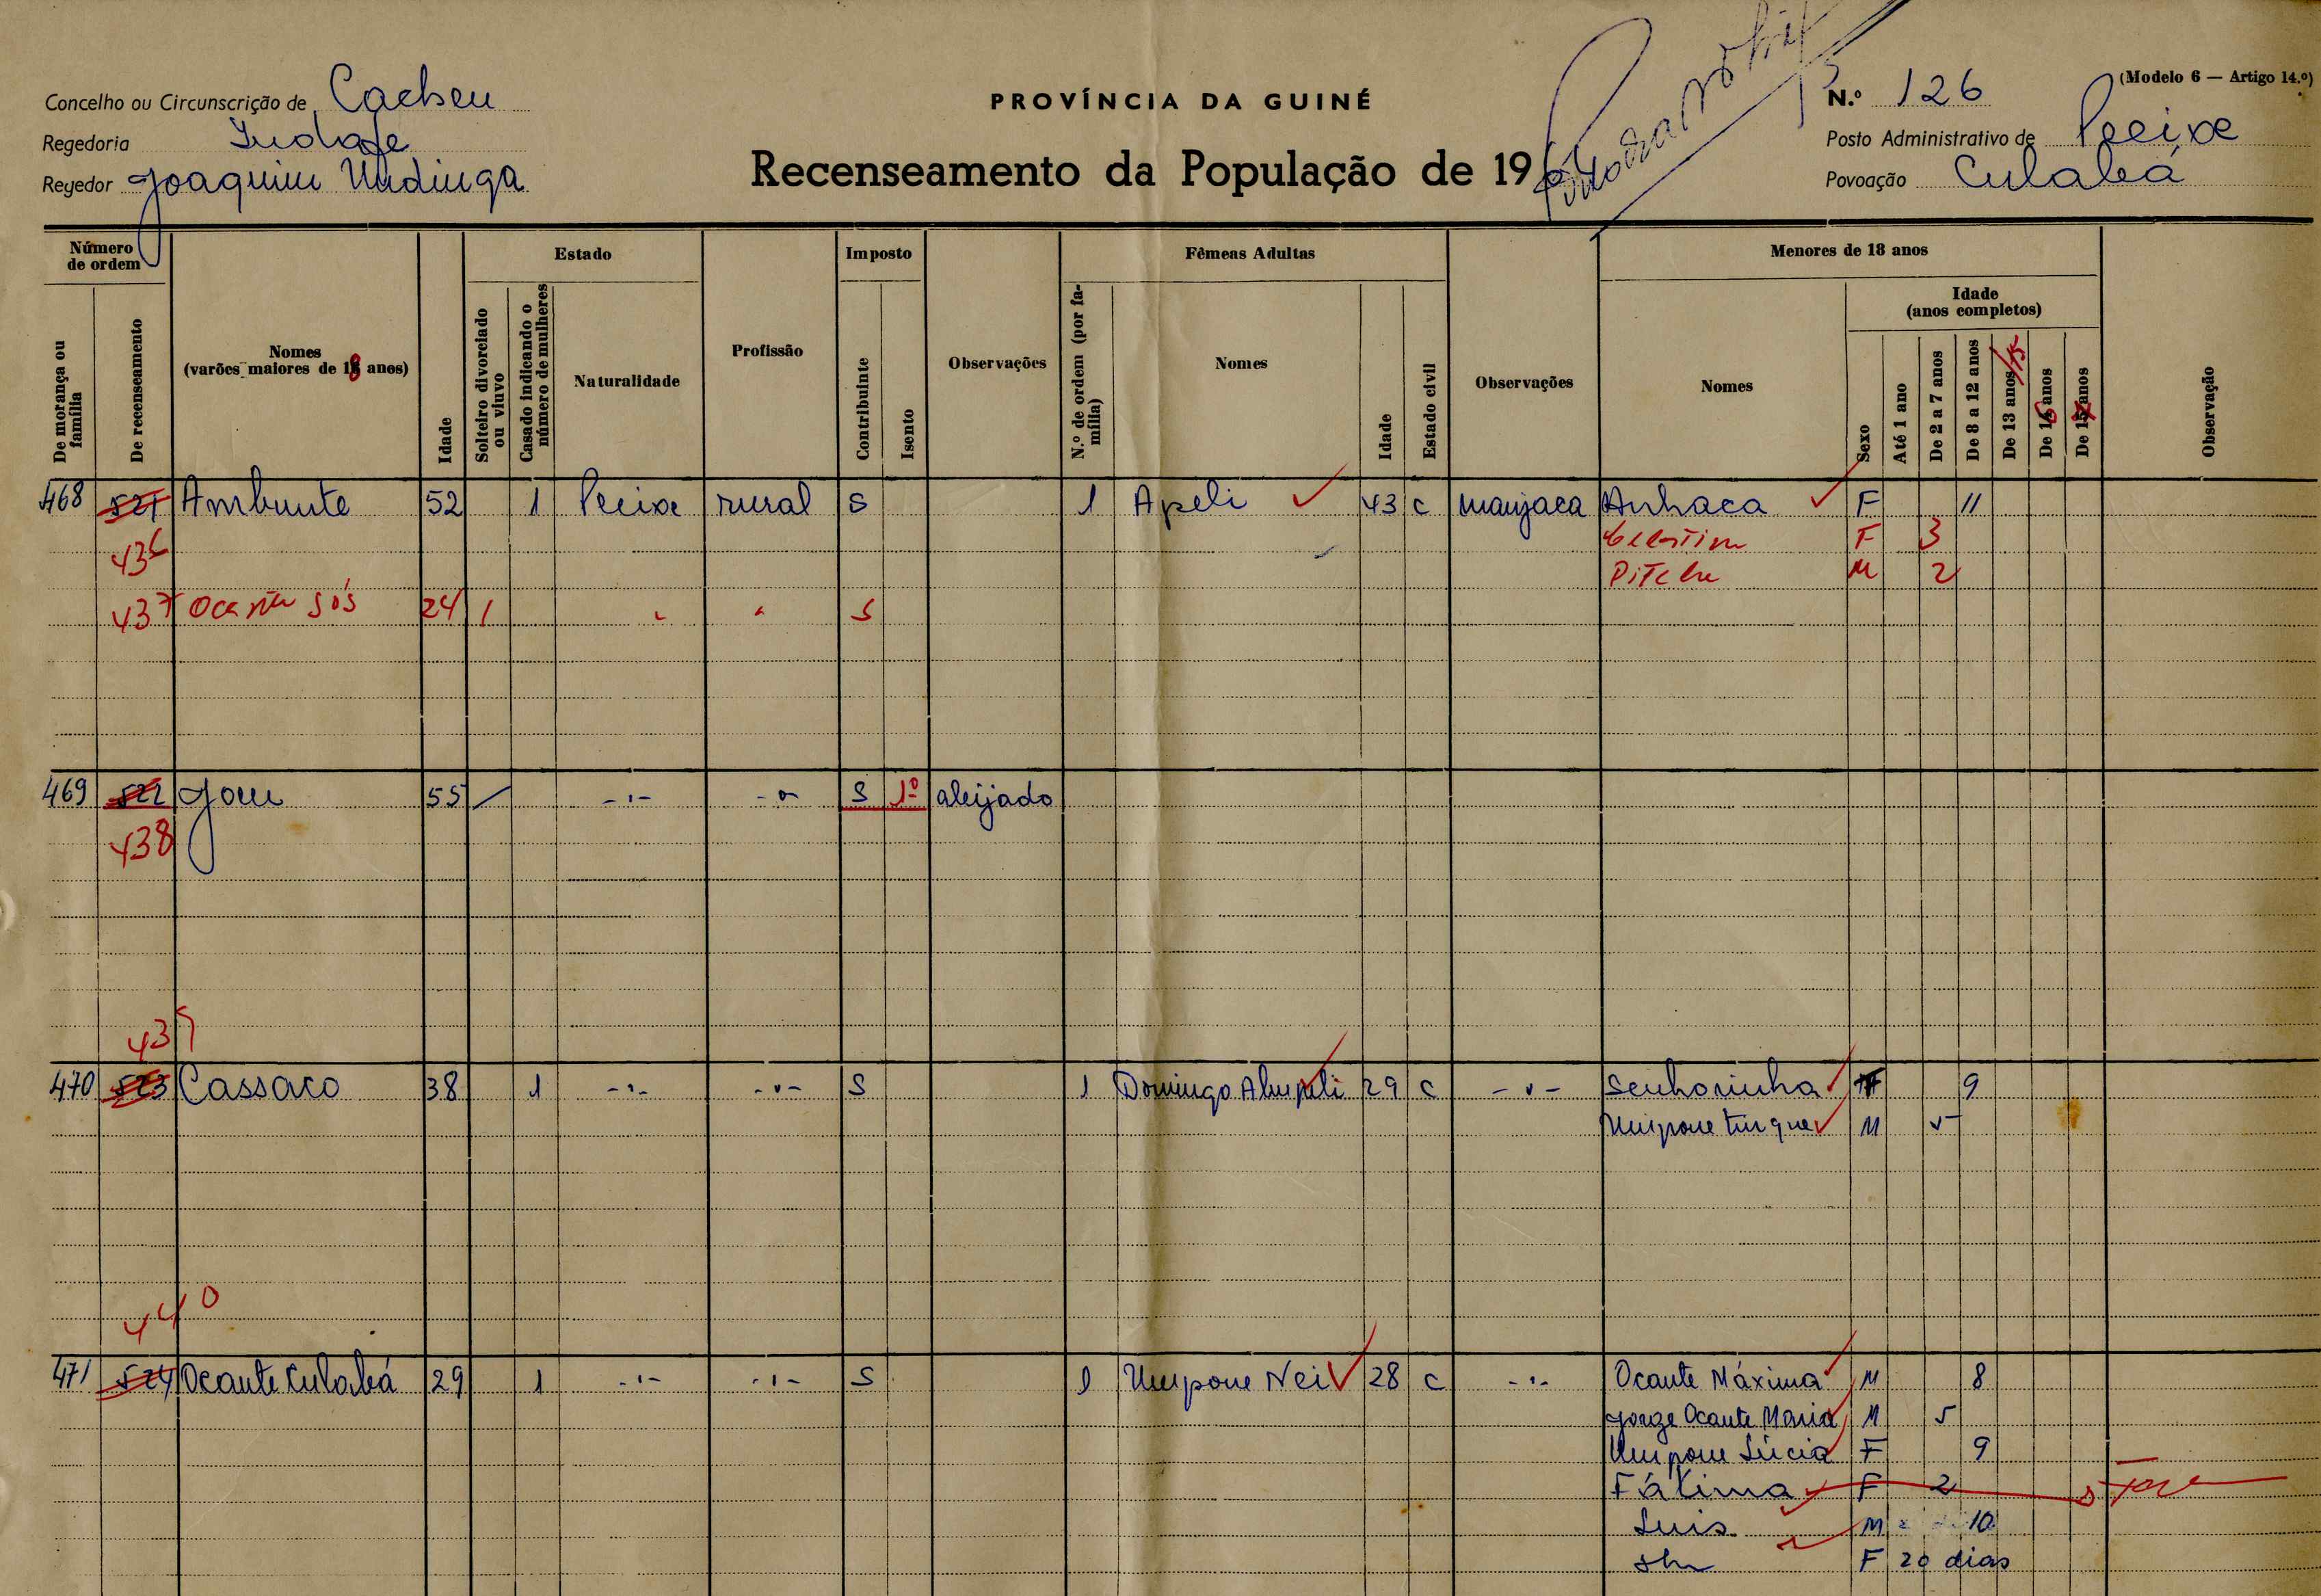 (Modelo 6 — Artigo 14.º)
Concelho ou Circunscrição de Cacheu
PROVÍNCIA DA GUINÉ
N.º 126
Regedoria
Posto Administrativo de Pecixe
Regedor Joaquim Undinga
Recenseamento da População de 196
Povoação Culabá
Número de ordem
Estado
Imposto
Fêmeas Adultas
Menores de 18 anos
De morança ou família
De recenseamento
Nomes (varões maiores de 18 anos)
Idade
Solteiro divorciado ou viuvo
Casado indicando o número de mulheres
Naturalidade
Profissão
Contribuinte
Isento
Observações
N.º de ordem (por família)
Nomes
Idade
Estado civil
Observações
Nomes
Sexo
Idade (anos completos)
Até 1 ano
De 2 a 7 anos
De 8 a 12 anos
De 13 anos /15
De 16 anos
De 17 anos
Observação
468 521 Ambunte 52 1 Pecixe rural S 1 Apeli 43 C manjaca Anhaca F 11
436 F 3
M 2
437 Ocante Sós 24 / " " S
469 522 Jom 55 / -"- -"- S 1º aleijado
438
439
470 523 Cassaco 38 1 -"- -"- S 1 Domingo 29 C -"- Senhorinha F 9
Umpone M 5
440
471 524 Ocante Culabá 29 1 -"- -"- S 1 Umpone Nei 28 C -"- Ocante Máxima M 8
Jorge Ocante Maria M 5
Umpone Lúcia F 9
Fátima F 2
Luis M 10
F 20 dias